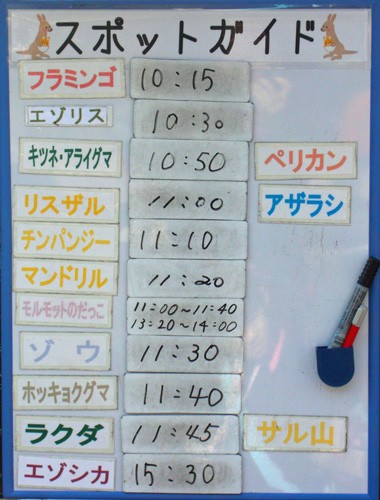 スポットガイド
フラミンゴ 10:15
エゾリス 10:30
キツネ・アライグマ 10:50 ペリカン
リスザル 11:00 アザラシ
チンパンジー 11:10
マンドリル 11:20
モルモットのだっこ 11:00~11:40
13:20~14:00
ゾウ 11:30
ホッキョクグマ 11:40
ラクダ 11:45 サル山
エゾシカ 15:30